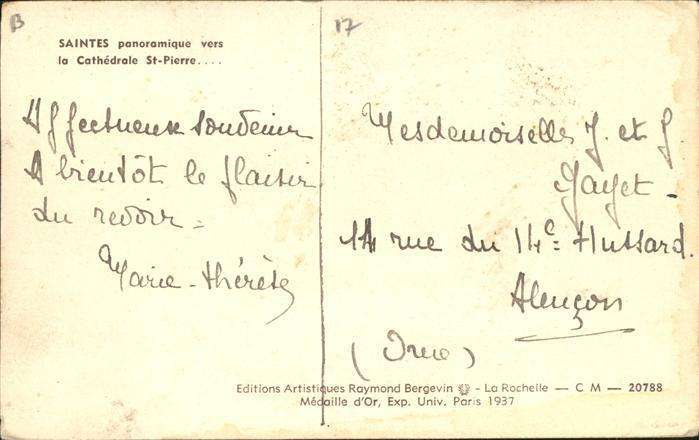 B
17
SAINTES panoramique vers
la Cathédrale St-Pierre....
Affectueux souvenir
A bientôt le plaisir
du revoir =
Marie-Thérèse
Mesdemoiselles J. et J
Gayet -
14 rue du 14e= Hussard.
Alençon
(Orne)
Editions Artistiques Raymond Bergevin - La Rochelle — C M — 20788
Médaille d'Or, Exp. Univ. Paris 1937